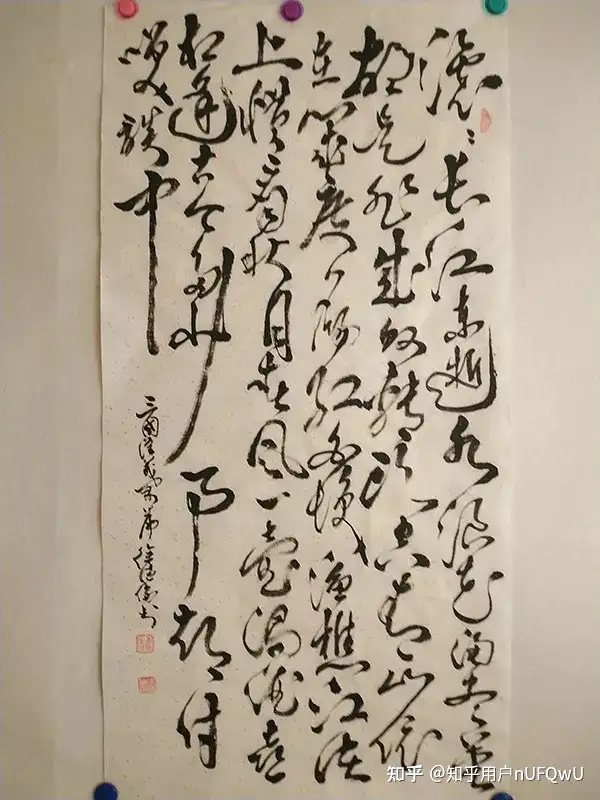 滚〻长江东逝水浪花淘尽英
雄是非成败转头空青山依
旧在几度夕阳红白发渔樵江渚
上惯看秋月春风一壶浊酒喜
相逢古今多少事都付
笑谈中
三国演义
知乎 @知乎用户nUFQwU